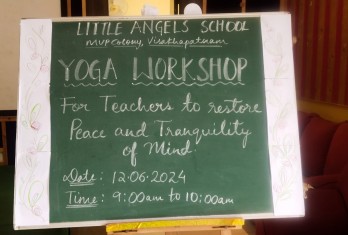 LITTLE ANGELS SCHOOL
MVP Colony, Visakhapatnam
YOGA WORKSHOP
For Teachers to restore
Peace and Tranquility
of Mind.
Date: 12.06.2024
Time: 9:00am to 10:00am